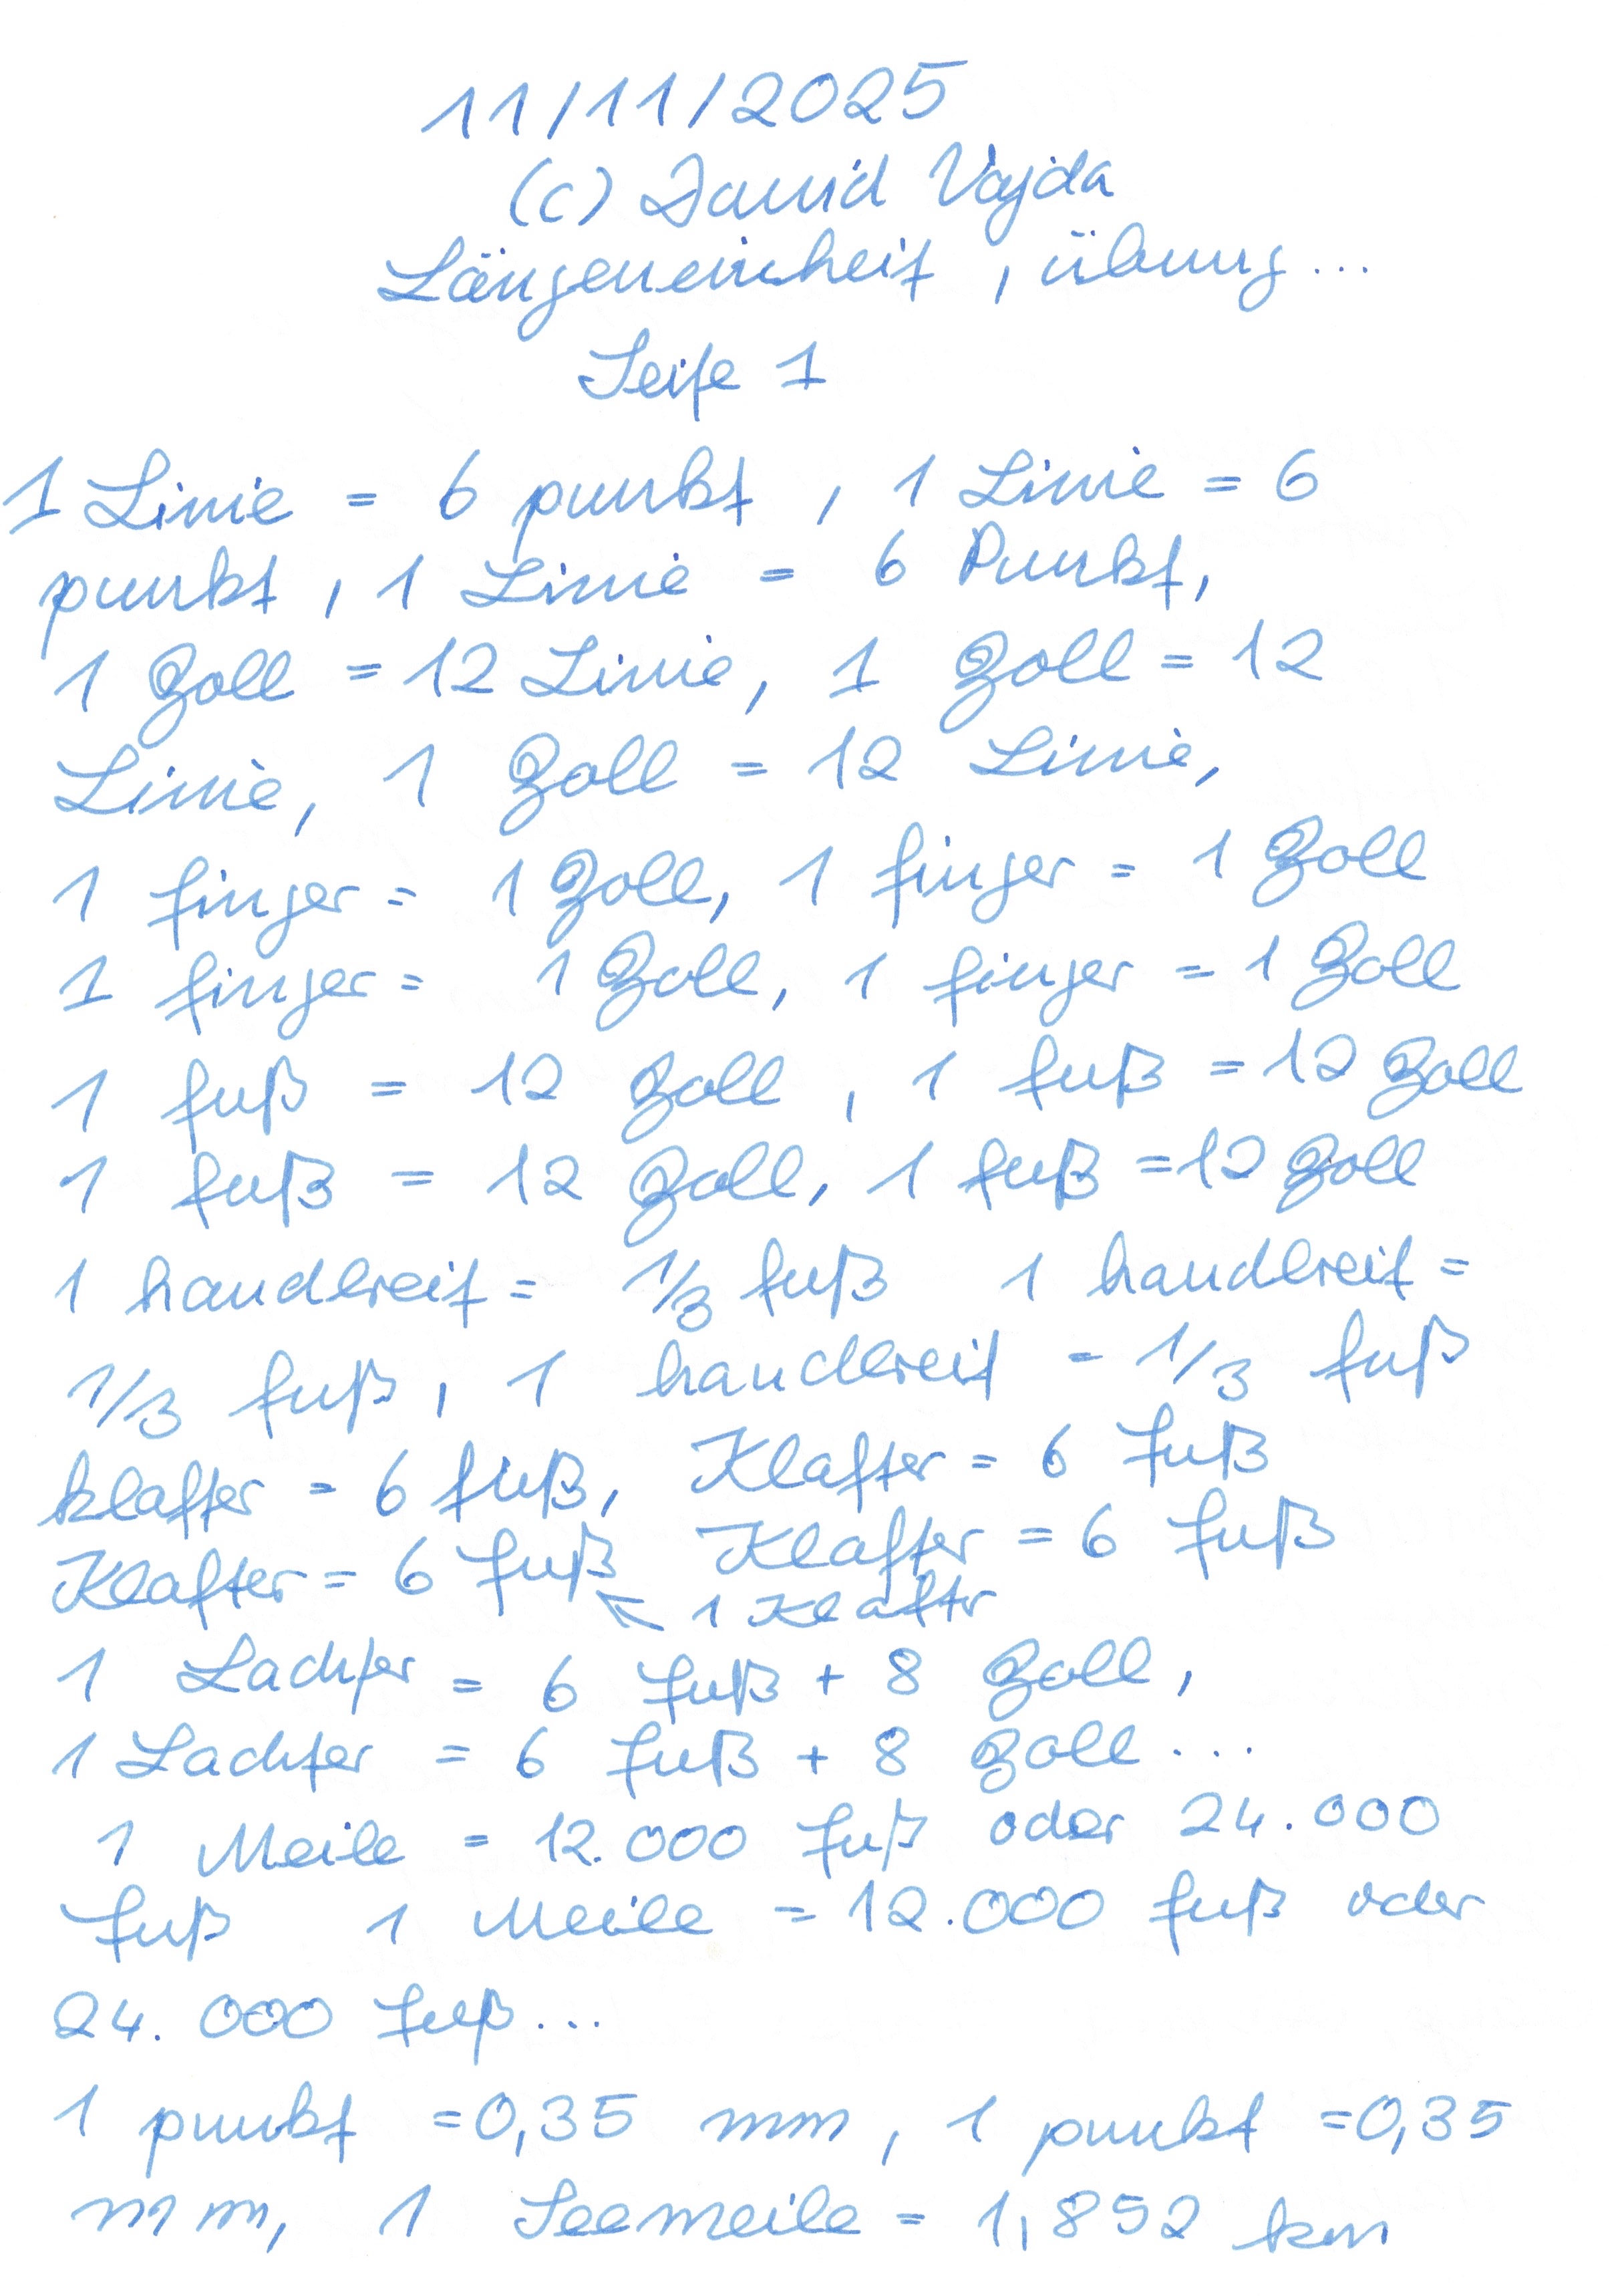 11/11/2025
(c) David Vajda
Längeneinheit, übung...
Seite 1
1 Linie = 6 punkt, 1 Linie = 6
punkt, 1 Linie = 6 Punkt,
1 Zoll = 12 Linie, 1 Zoll = 12
Linie, 1 Zoll = 12 Linie,
1 finger = 1 Zoll, 1 finger = 1 Zoll
1 finger = 1 Zoll, 1 finger = 1 Zoll
1 fuß = 12 Zoll, 1 fuß = 12 Zoll
1 fuß = 12 Zoll, 1 fuß = 12 Zoll
1 handbreit = 1/3 fuß 1 handbreit =
1/3 fuß, 1 handbreit - 1/3 fuß
klafter = 6 fuß, Klafter = 6 fuß
Klafter = 6 fuß Klafter = 6 fuß
← 1 Klaftr
1 Lachter = 6 fuß + 8 Zoll,
1 Lachter = 6 fuß + 8 Zoll...
1 Meile = 12.000 fuß oder 24.000
fuß 1 Meile = 12.000 fuß oder
24.000 fuß...
1 punkt = 0,35 mm, 1 punkt = 0,35
mm, 1 Seemeile = 1,852 km